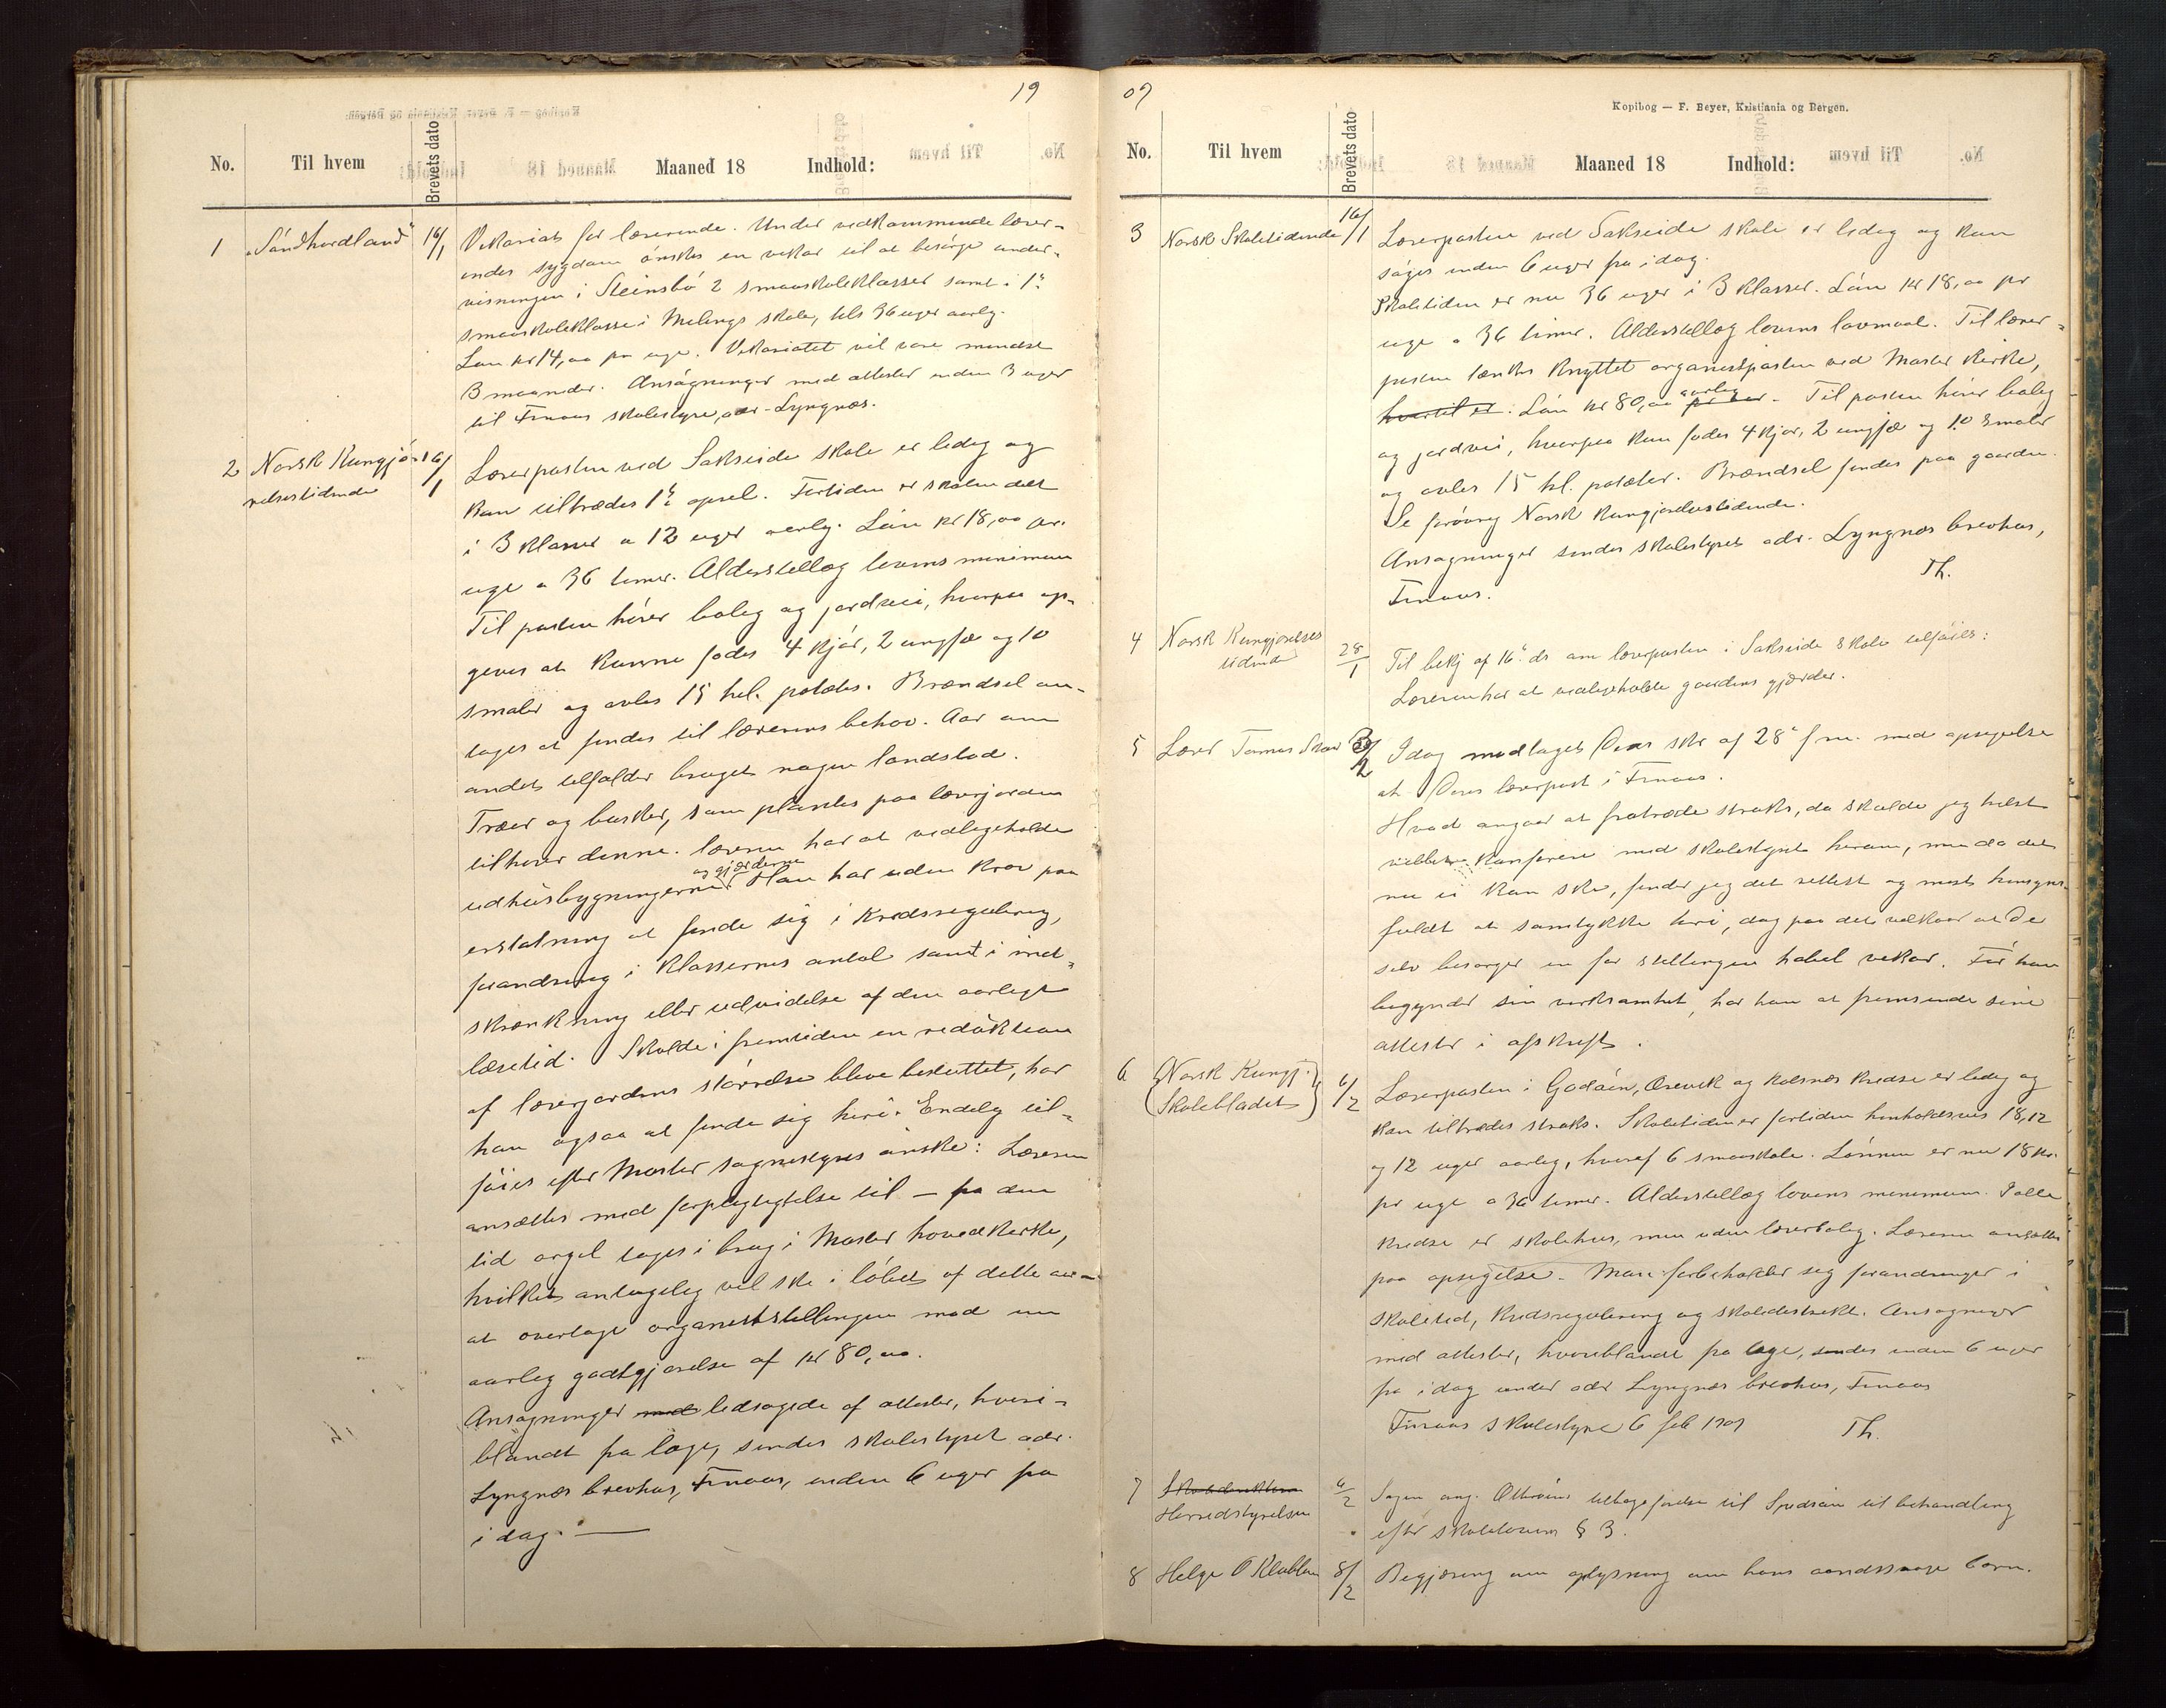 19
No. Til hvem Brevets dato Maaned 18 Indhold:
1 „Söndhordland" 16/1 Vikariat for lærerinde. Under vedkommende lærer-
indes sygdom önskes en vikar til at besörge under-
visningen i Steinsbö 2 smaaskoleklasser samt i 1ste
smaaskoleklasse i Melings skole, tils 36 uger aarlig.
Lön kr 14,00 pr uge. Vikariatet vil vare mindst
3 maaneder. Ansögninger med attester inden 3 uger
til Finaas skolestyre, adr. Lyngnæs.
2 Norsk Kungjö- 16/1 Lærerposten ved Sakseide skole er ledig og
relsestidende kan tiltrædes 1ste april. Fortiden er skolen delt
i 3 klasser a 12 uger aarlig. Lön kr 18,00 pr.
uge a 36 timer. Alderstillæg lovens minimum
Til posten hörer bolig og jordvei, hvorpaa op-
gives at kunne födes 4 kjör, 2 ungfæ og 10
smaler og avles 15 hl. potetes. Brændsel an-
tages at findes til lærerens behov. Aar om
andet tilfalder bruget nogen landslod.
Træer og busker, som plantes paa lærerjorden
tilhörer denne. læreren har at vedligeholde
udhusbygningerne og gjærderne Han har uden krav paa
erstatning at finde sig i kredsregulering,
forandring i klassernes antal samt i ind-
skrænkning eller udvidelse af den aarlige
læsetid. Skulde i fremtiden en reduktion
af lærerjordens störrelse blive besluttet, har
han ogsaa at finde sig heri. Endelig til-
föies efter Moster sognestyres önske: Læreren
ansættes med forpligtigtelse til – fra den
tid orgel tages i brug i Moster hovedkirke,
hvilket antagelig vil ske i löbet af dette aar –
at overtage organiststillingen mod en
aarlig godtgjörelse af kr 80,00.
Ansögninger med ledsagede af attester, hvori-
blandt fra læge, sendes skolestyret adr.
Lyngnæs brevhus, Finaas, inden 6 uger fra
i dag. —
07
Kopibog — F. Beyer, Kristiania og Bergen.
No. Til hvem Brevets dato Maaned 18 Indhold:
3 Norsk Skoletidende 16/1 Lærerposten ved Sakseide skole er ledig og kan
söges inden 6 uger fra idag.
Skoletiden er nu 36 uger i 3 klasser. Lön kr 18,00 pr
uge a 36 timer. Alderstillæg lovens lavmaal. Til lærer-
posten tænkes knyttet organistposten ved Moster kirke,
hvortil er. Lön kr 80,00 pr aar aarlig. Til posten hörer bolig
og jordvei, hvorpaa kan födes 4 kjör, 2 ungfæ og 10 smaler
og avles 15 hl. poteter. Brændsel findes paa gaarden.
Se forövrig Norsk Kungjörelsestidende.
Ansögninger sendes skolestyret adr. Lyngnæs brevhus,
Finaas. Th.
4 Norsk Kungjörelses 28/1 Til bekj af 16de ds om lærerposten i Sakseide skole tilföies:
tidende Læreren har at vedligeholde gaardens gjærder.
5 Lærer Tomas 2 Idag modtaget Deres skr af 28de f m. med opsigelse
at Deres lærerpost i Finaas.
Hvad angaar at fratræde straks, da skulde jeg helst
villet konferere med skolestyret herom, men da det
nu ei kan ske, finder jeg det rettest og mest hensigts-
fuldt at samtykke heri, dog paa det vilkaar at De
selv besörger en for stillingen habil vikar. För han
begynder sin verksamhet, har han at fremsende sine
attester i afskrift.
6 Norsk Kungj. 6/2 Lærerposten i Godöen, Örevik og Kolsnæs kredse er ledig og
Skolebladet kan tiltrædes straks. Skoletiden er fortiden henholdsvis 18,12
og 12 uger aarlig, hvoraf 6 smaaskole. Lönnen er nu 18 kr.
pr uge a 36 timer. Alderstillæg lovens minimum. I alle
kredse er skolehus, men uden lærerbolig. Læreren ansættes
paa opsigelse. Man forbeholder sig forandringer i
skoletid, kredsregulering og skoledistrikt. Ansögninger
med attester, hvoriblandt fra læge, sendes inden 6 uger
fra idag under adr Lyngnæs brevhus, Finaas
Finaas skolestyre 6 feb 1907 Th.
7 Skoledirektören 6/2 Sagen ang. tilbage til til behandling
Herredstyrelsen efter skoleloven § 3.
8 Helge O 8/2 Begjæring om oplysning om hans aandssvage börn.